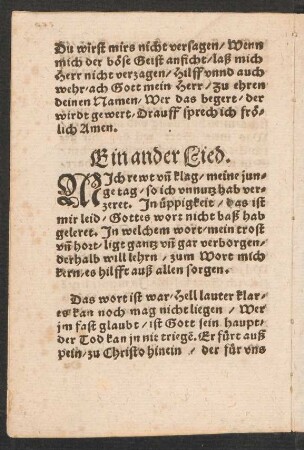 Du wirst mirs nicht versagen/ Wenn
mich der böse Geist anficht/ laß mich
Herr nicht verzagen/ Hilff vnnd auch
wehr/ ach Gott mein Herr/ Zu ehren
deinen Namen/ Wer das begert/ der
wirdt gewert/ Drauff sprech ich frö-
lich Amen.
Ein ander Lied.
MIch rewt vñ klag/ meine jun-
ge tag/ so ich vnnutz hab ver-
zeret. In üppigkeit/ das ist
mir leid/ Gottes wort nicht baß hab
geleret. In welchem wort/ mein trost
vñ hort/ ligt gantz vñ gar verborgen/
derhalb will lehrn/ zum Wort mich
kern/ es hilfft auß allen sorgen.
Das wort ist war/ Hell lauter klar/
es kan noch mag nicht liegen/ Wer
jm fast glaubt/ ist Gott sein haupt/
der Tod kan jn nit triegẽ. Er fürt auß
pein/ zu Christo hinein/ der für vns